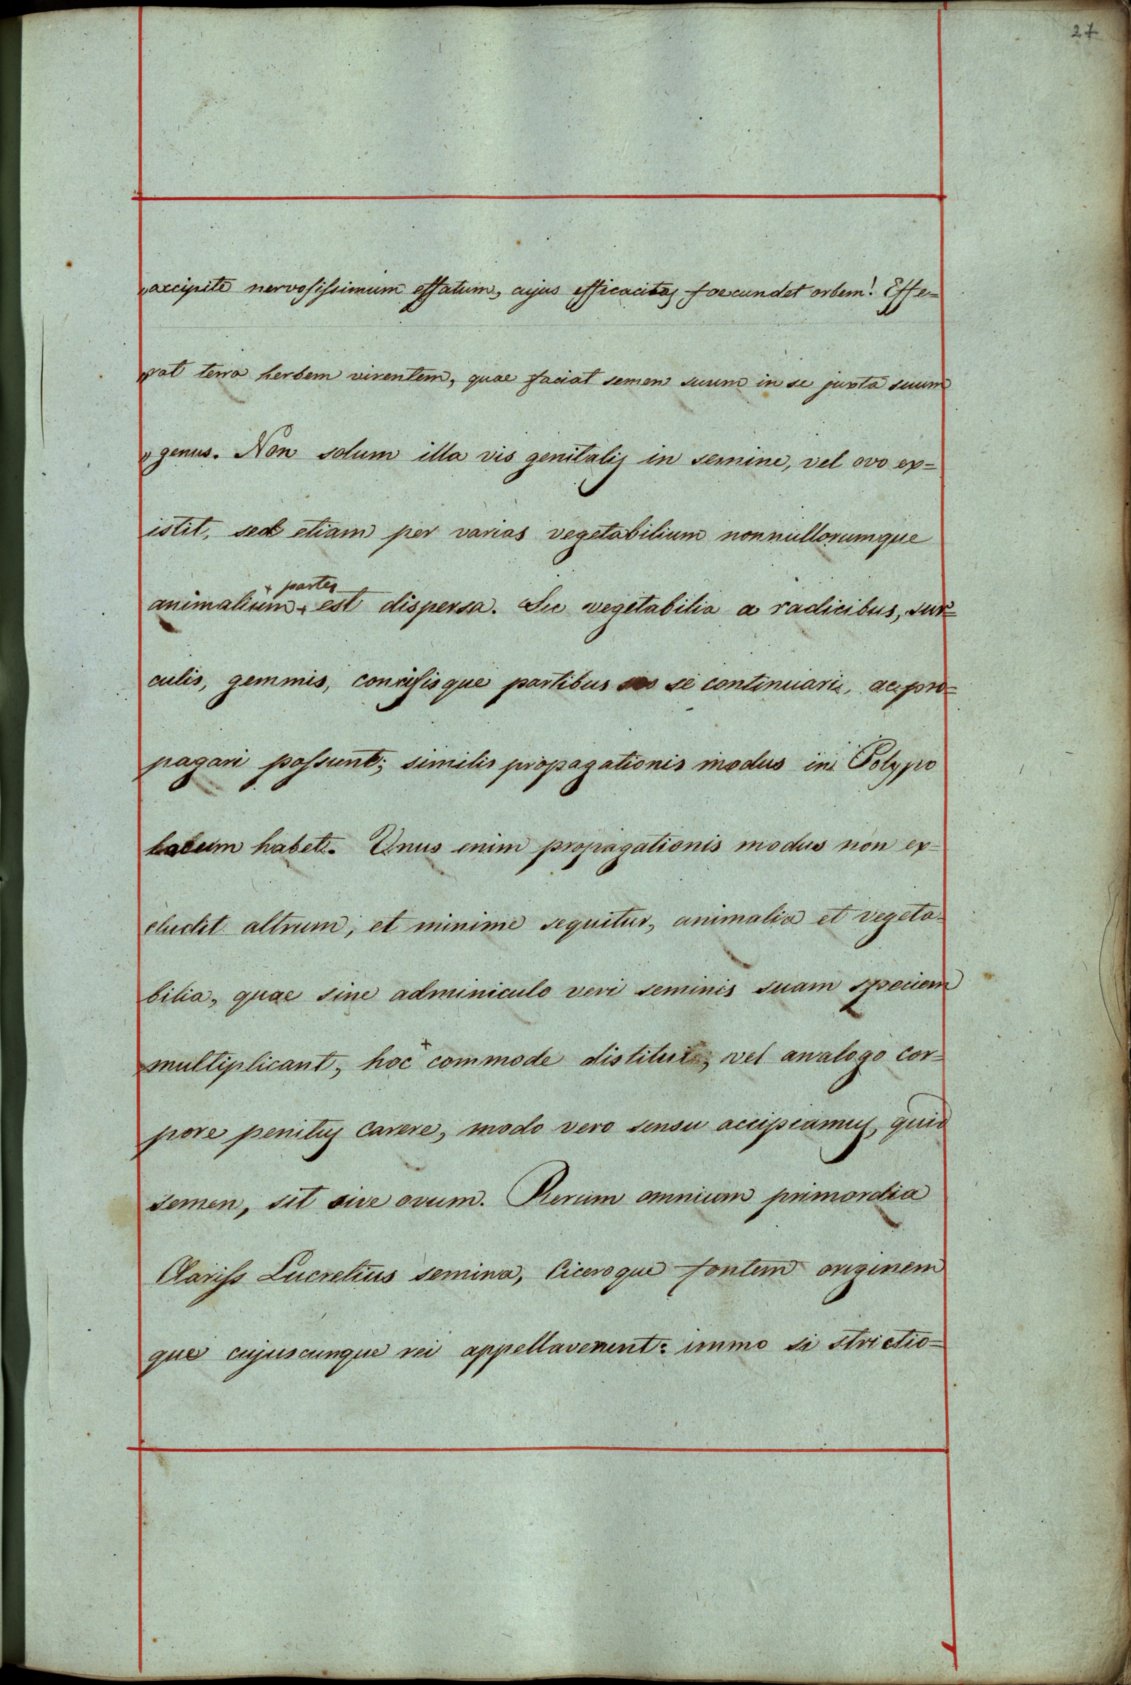 27
„accipite nervosissimum effatum, cujus efficacitas foecundet orbem! Effe=
„rat terra herbem virentem, quae faciat semen suum in se juxta suum
„genus. Non solum illa vis genitalis in semine, vel ovo ex=
istit, sed etiam per varias vegetabilium nonnullorumque
partes
animalium + est dispersa. Sic vegetabilia a radicibus, sur=
culis, gemmis, concisisque partibus se continuari, ac pro=
pagari possunt; similis propagationis modus in Polypo
locum habet. Unus enim propagationis modus non ex=
cludit altrum, et minime sequitur, animalia et vegeta=
bilia, quae sine adminiculo veri seminis suam speciem
multiplicant, hoc commode distituta, vel analogo cor=
pore penitus carere, modo vero sensu accipiamus, quid
semen, sit sive ovum. Rerum omnium primordia
Clariss Lucretius semina, Ciceroque fontem originem
que cujuscunque rei appellaverunt: immo si strictio=